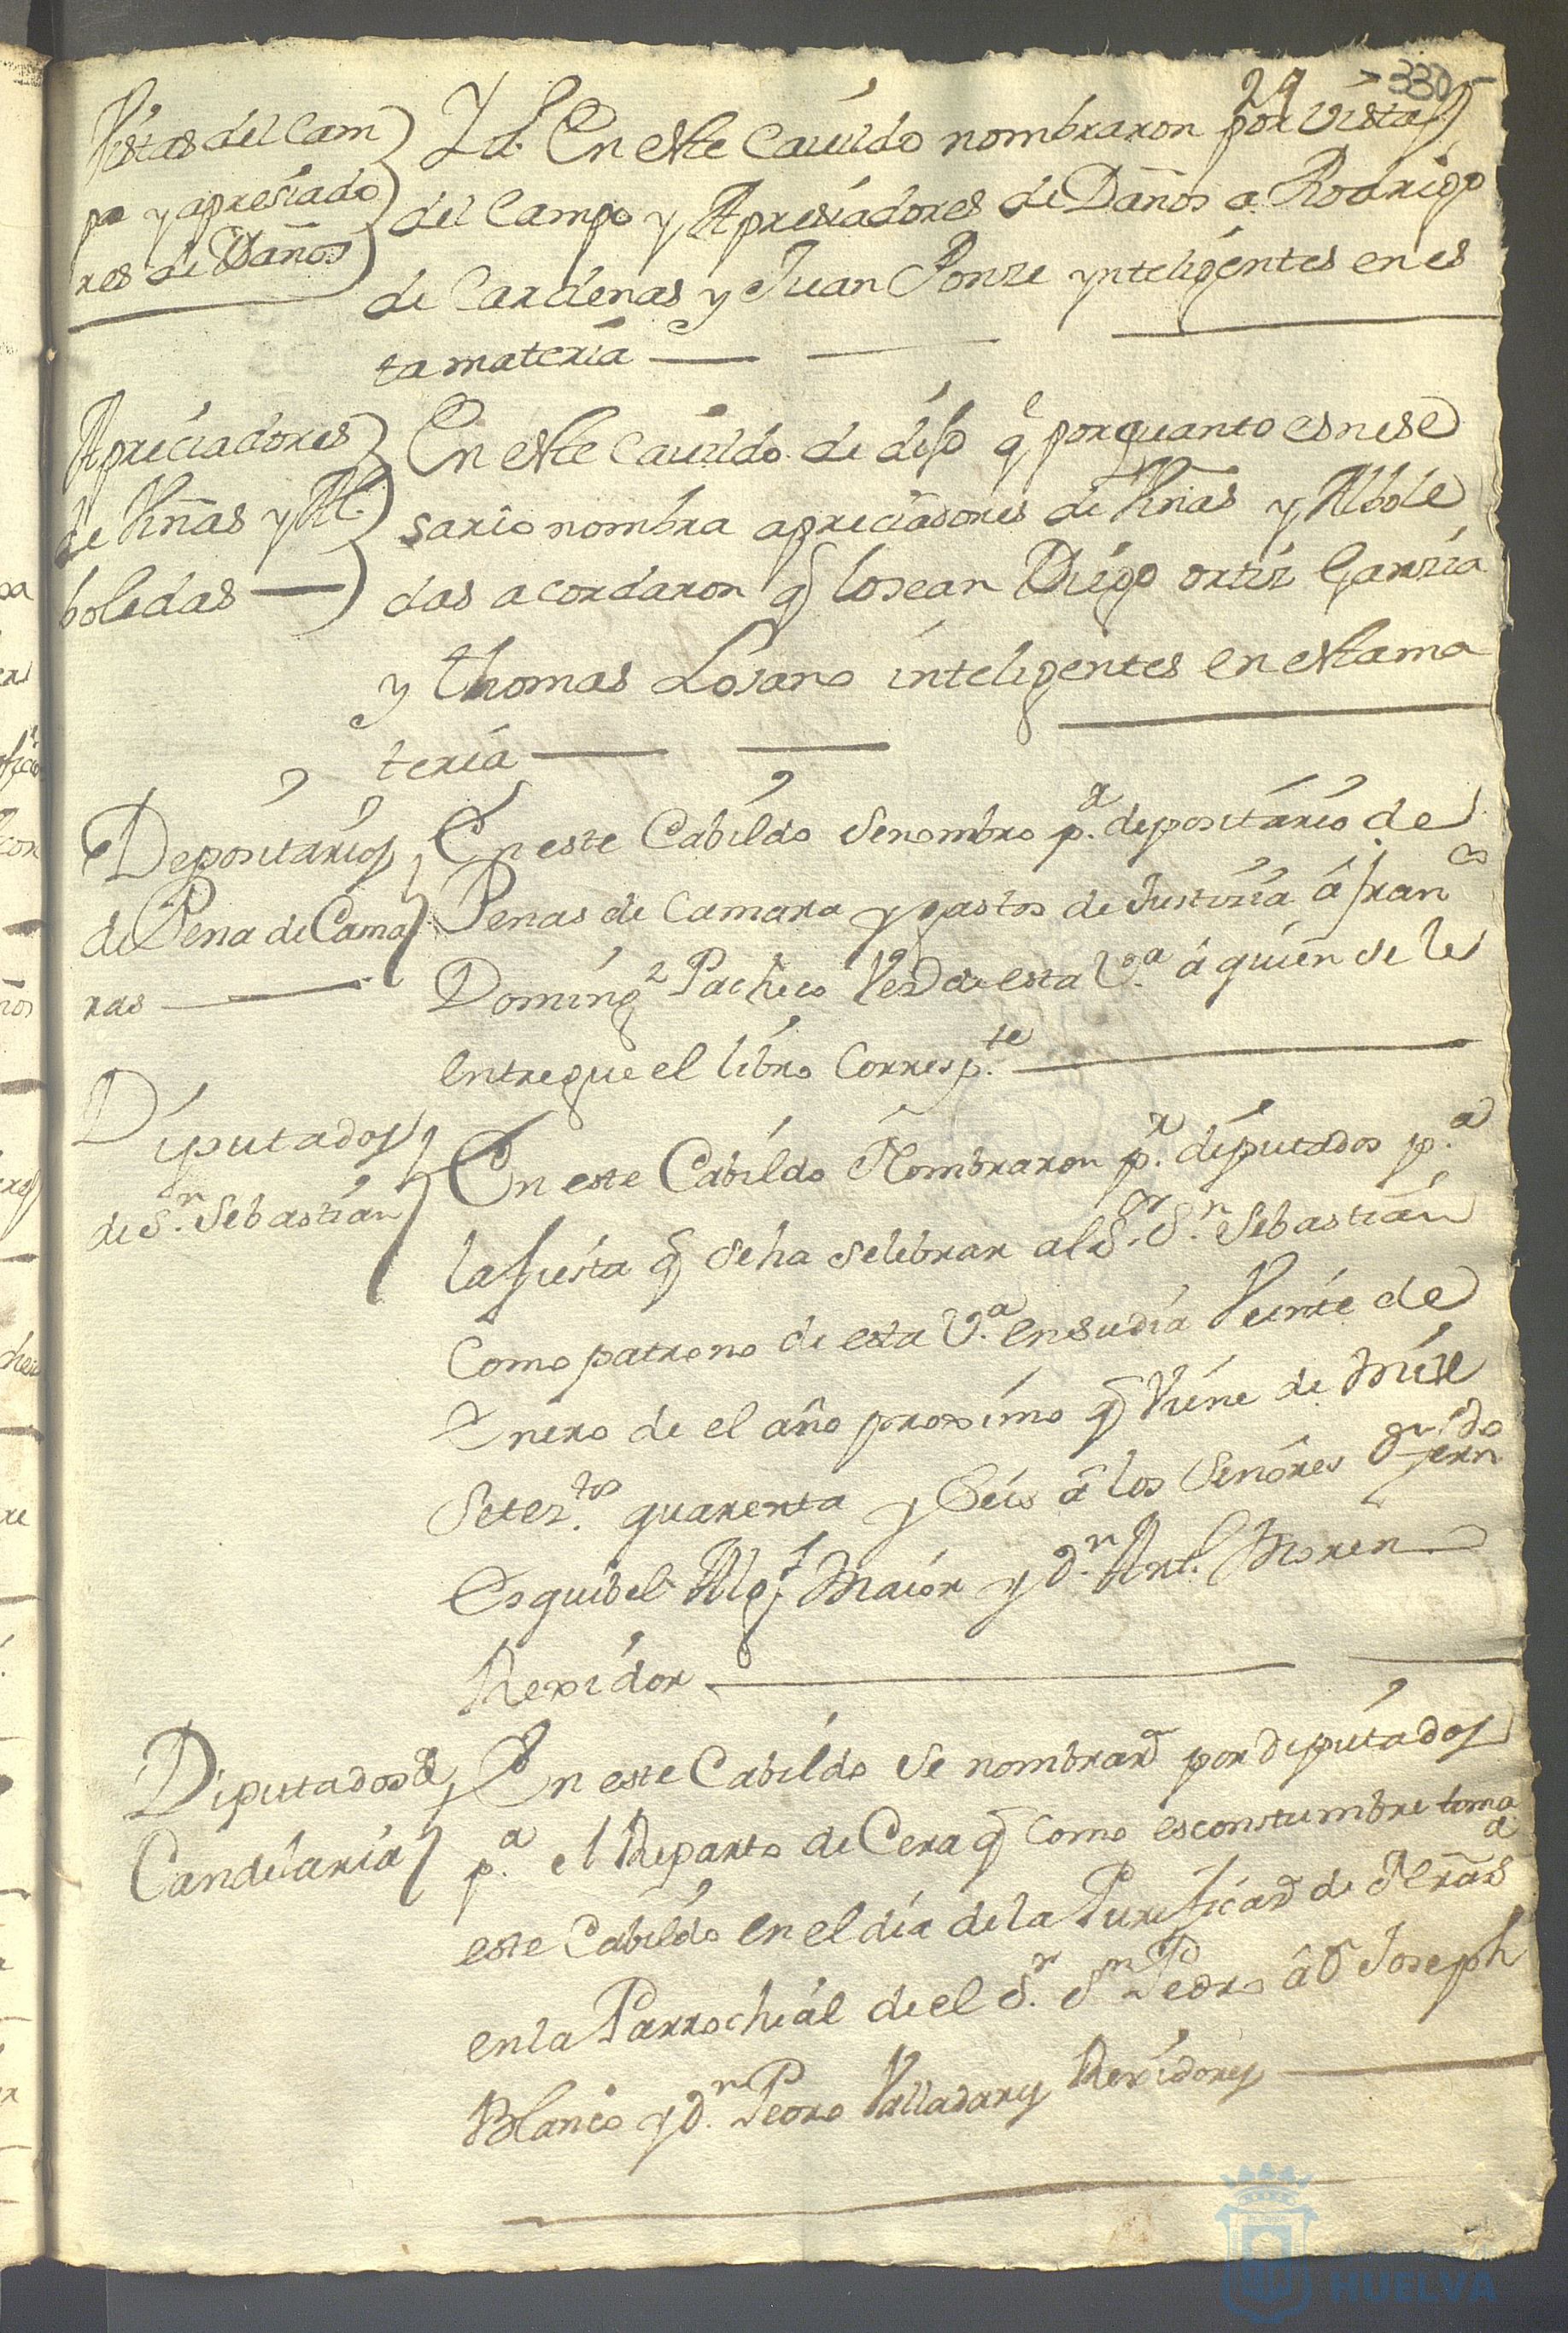 29 330
Vistas del Cam
po y apresiado
res de Daños
Yd. En este Cauildo nombraron por Vistas
del Campo y Apresiadores de Daños a Rodrigo
de Cardenas y Juan Ponze ynteligentes en es
ta materia
Apreciadores
de Viñas y Al
boledas
En este Cauildo de dijo q.e por quanto es nese
sario nombra apreciadores de Viñas y Albole
das acordaron q lo sean Diego ortiz Garzia
y Thomas Losano inteligentes en esta ma
teria
Depositarios
de Pena de Cama
ras
En este Cabildo se nombro p.a depositario de
Penas de Camara y gastos de Justizia â fran.co
Doming.z Pacheco Vez.o de esta V.a â quien se le
entregue el libro Corresp.te
Diputados
de S.n Sebastian
En este Cabildo Nombraron p.r diputados p.a
la fiesta q se ha selebrar al S.or S.n Sebastian
Como patrono de esta V.a en su dia Veinte de
Enero de el año proximo q Viene de Mill
Setez.tos quarenta y Seis â los Señores D.n fern.do
Esquibel Alg.l Maior y D.n Ant.o Moreno
Rexidor
Diputados de
Candelaria
En este Cabildo se nombraron por diputados
p.a el Reparto de Cera q Como es constumbre toma
este Cabildo en el dia de la Purificaz.n de N.ra S.a
en la Parrochial de el S.r S.n Pedro â D.n Joseph
Blanco y D.n Pedro Valladares Rexidores
HUELVA